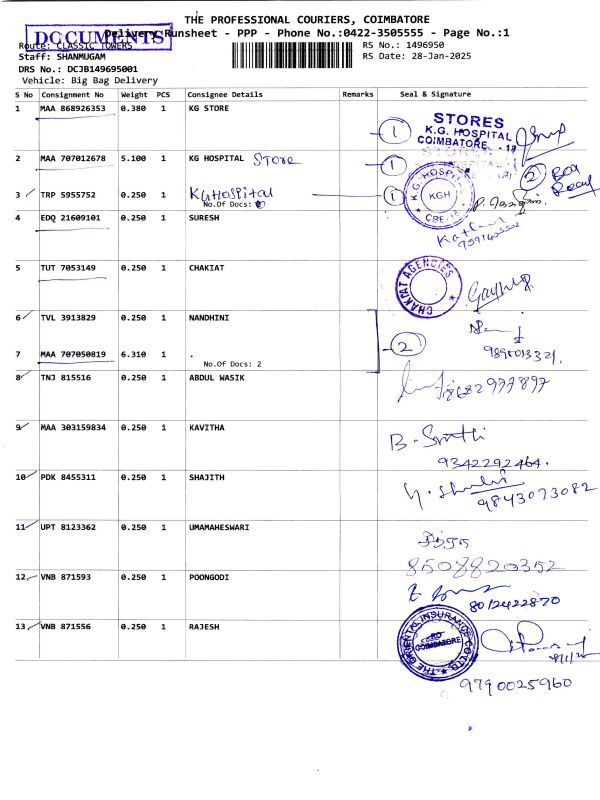 THE PROFESSIONAL COURIERS, COIMBATORE
DOCUMENTS
Delivery Runsheet - PPP - Phone No.:0422-3505555 - Page No.:1
Route: CLASSIC TOWERS
RS No.: 1496950
Staff: SHANMUGAM
RS Date: 28-Jan-2025
DRS No.: DCJB149695001
Vehicle: Big Bag Delivery
S No Consignment No Weight PCS Consignee Details Remarks Seal & Signature
1 MAA 868926353 0.380 1 KG STORE
1 STORES
K.G. HOSPITAL
COIMBATORE - 18
2 MAA 707012678 5.100 1 KG HOSPITAL Store
1
2 Box
3 TRP 5955752 0.250 1 KG Hospital
No.Of Docs:
1 K.G. HOSPITAL KGH CBE-18
4 EDQ 21609101 0.250 1 SURESH
5 TUT 7053149 0.250 1 CHAKIAT
CHAKIAT AGENCIES
6 TVL 3913829 0.250 1 NANDHINI
2
7 MAA 707050819 6.310 1 .
No.Of Docs: 2
9895013321.
8 TNJ 815516 0.250 1 ABDUL WASIK
8682977897
9 MAA 303159834 0.250 1 KAVITHA
9342292464.
10 PDK 8455311 0.250 1 SHAJITH
9843073082
11 UPT 8123362 0.250 1 UMAMAHESWARI
8508820352
12 VNB 871593 0.250 1 POONGODI
8012422870
13 VNB 871556 0.250 1 RAJESH
THE ORIENTAL INSURANCE CO. LTD. RO COIMBATORE
9790025960